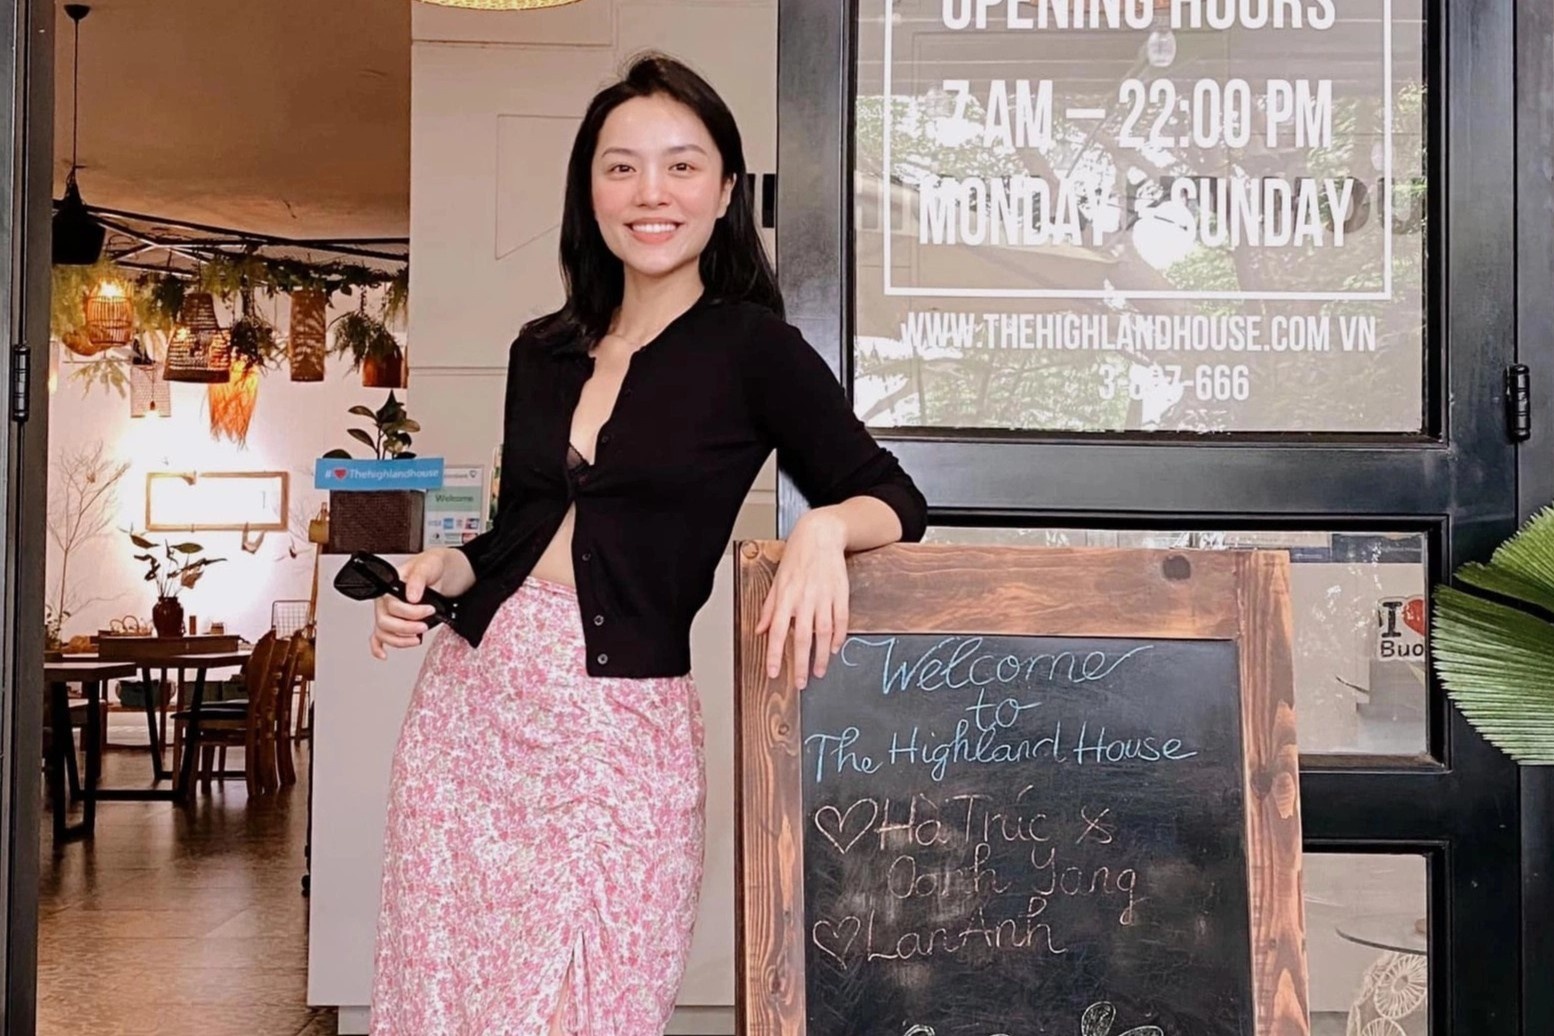 OPENING HOURS
7 AM – 22:00 PM
MONDAY SUNDAY
WWW.THEHIGHLANDHOUSE.COM VN
#❤Thehighlandhouse
Welcome
VISA
I ❤
Buo
Welcome
to
The Highland House
♡ Hà Trúc x
Oanh Yang
♡ Lan Anh